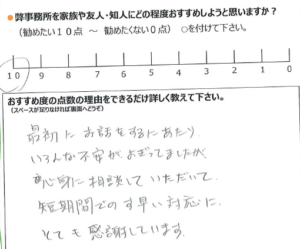 ●弊事務所を家族や友人・知人にどの程度おすすめしようと思いますか？
（勧めたい１０点 ～ 勧めたくない０点） ○を付けて下さい。
10 9 8 7 6 5 4 3 2 1 0
おすすめ度の点数の理由をできるだけ詳しく教えて下さい。
（スペースが足りなければ裏面へどうぞ）
最初にお話をするにあたり
いろんな不安がよぎってましたが
心身に相談していただいて
短期間でのす早い対応に
とても感謝しています。